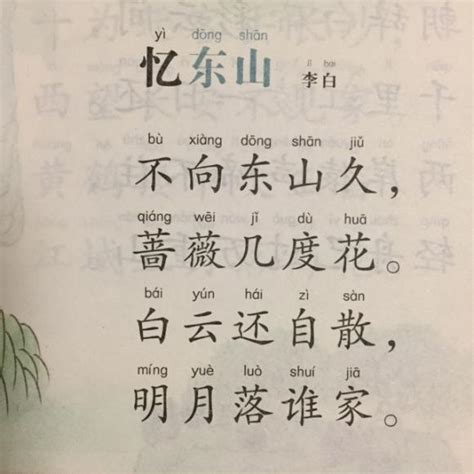 yì dōng shān
忆东山
lǐ bái
李白
bù xiàng dōng shān jiǔ
不向东山久，
qiáng wēi jǐ dù huā
蔷薇几度花。
bái yún hái zì sàn
白云还自散，
míng yuè luò shuí jiā
明月落谁家。